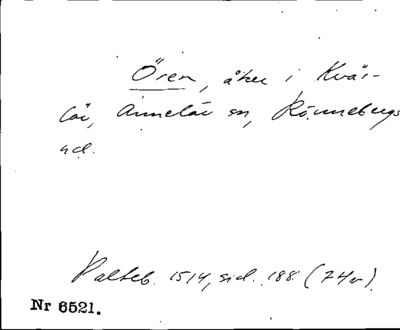 Ören, åker i Kvär-
löv, Annelöv sn, Rönnebergs
hd.
Palteb. 1514, sid. 188 (74v).
Nr 6521.